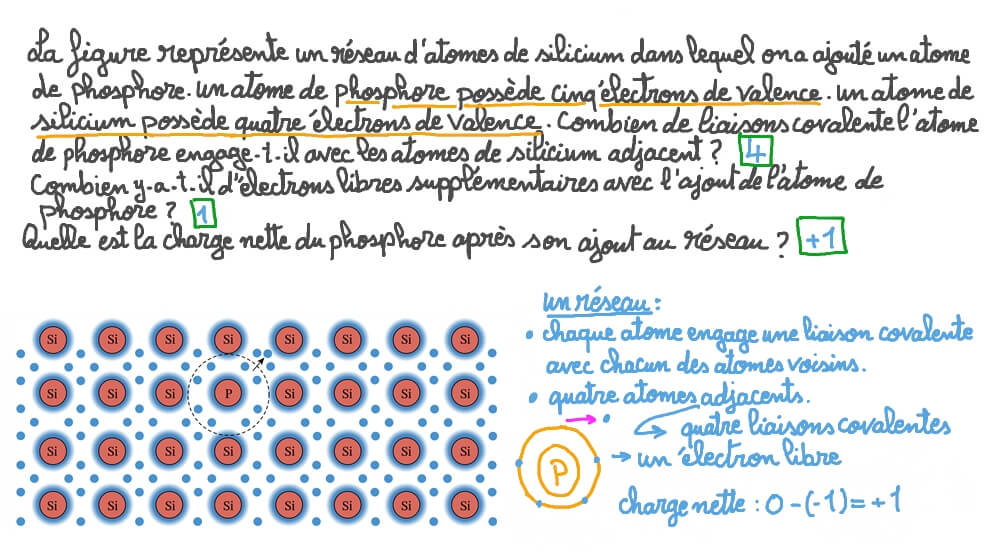 La figure représente un réseau d'atomes de silicium dans lequel on a ajouté un atome
de phosphore. un atome de phosphore possède cinq électrons de valence. un atome de
silicium possède quatre électrons de valence. Combien de liaisons covalente l'atome
de phosphore engage-t-il avec les atomes de silicium adjacent ? 4
Combien y-a-t-il d'électrons libres supplémentaires avec l'ajout de l'atome de
phosphore ? 1
Quelle est la charge nette du phosphore après son ajout au réseau ? +1
un réseau :
• chaque atome engage une liaison covalente
avec chacun des atomes voisins.
• quatre atomes adjacents.
quatre liaisons covalentes
→ un électron libre
P
charge nette : 0 - (-1) = +1
Si Si Si Si Si Si Si Si
Si Si Si P Si Si Si Si
Si Si Si Si Si Si Si Si
Si Si Si Si Si Si Si Si